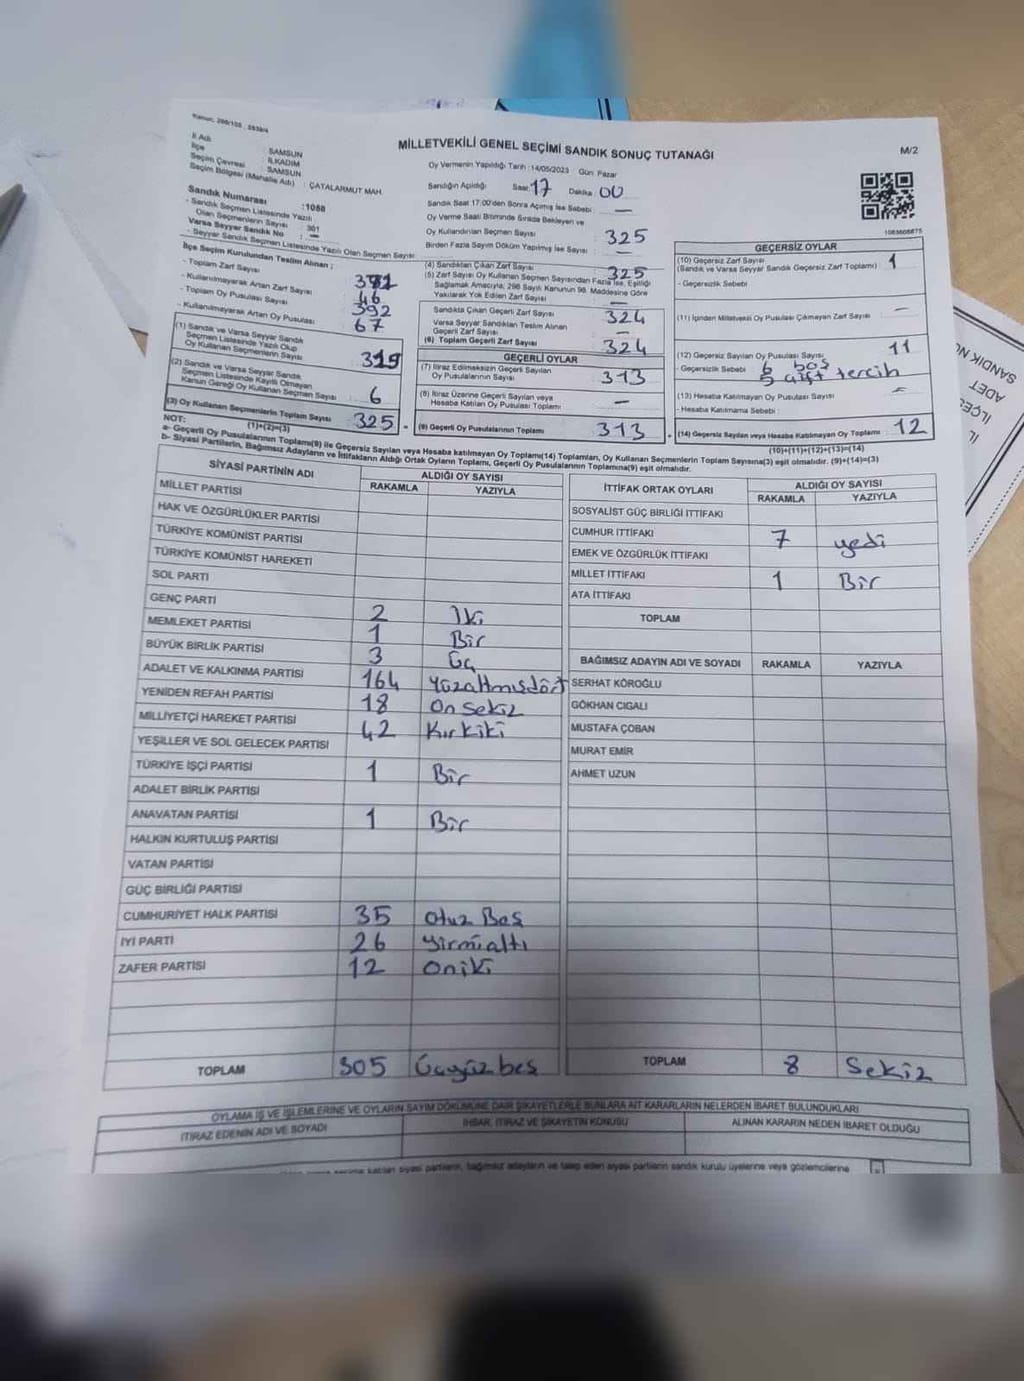 Kanun: 298/105 , 2839/4
MİLLETVEKİLİ GENEL SEÇİMİ SANDIK SONUÇ TUTANAĞI
M/2
İl Adı : SAMSUN
İlçe : İLKADIM
Seçim Çevresi : SAMSUN
Seçim Bölgesi (Mahalle Adı) : ÇATALARMUT MAH.
Sandık Numarası :1088
- Sandık Seçmen Listesinde Yazılı
Olan Seçmenlerin Sayısı : 361
Varsa Seyyar Sandık No : —
- Seyyar Sandık Seçmen Listesinde Yazılı Olan Seçmen Sayısı:
Oy Vermenin Yapıldığı Tarih :14/05/2023 Gün: Pazar
Sandığın Açıldığı Saat: 17 Dakika: 00
Sandık Saat 17:00'den Sonra Açılmış İse Sebebi : —
Oy Verme Saati Bitiminde Sırada Bekleyen ve
Oy Kullandırılan Seçmen Sayısı : 325
Birden Fazla Sayım Döküm Yapılmış İse Sayısı : —
1083608875
İlçe Seçim Kurulundan Teslim Alınan ;
- Toplam Zarf Sayısı
- Kullanılmayarak Artan Zarf Sayısı : 46
- Toplam Oy Pusulası Sayısı : 392
- Kullanılmayarak Artan Oy Pusulası : 67
(1) Sandık ve Varsa Seyyar Sandık
Seçmen Listesinde Yazılı Olup
Oy Kullanan Seçmenlerin Sayısı : 319
(2) Sandık ve Varsa Seyyar Sandık
Seçmen Listesinde Kayıtlı Olmayan
Kanun Gereği Oy Kullanan Seçmen Sayısı : 6
(3) Oy Kullanan Seçmenlerin Toplam Sayısı : 325
(1)+(2)=(3)
(4) Sandıktan Çıkan Zarf Sayısı : 325
(5) Zarf Sayısı Oy Kullanan Seçmen Sayısından Fazla İse, Eşitliği
Sağlamak Amacıyla; 298 Sayılı Kanunun 98. Maddesine Göre
Yakılarak Yok Edilen Zarf Sayısı : —
Sandıkta Çıkan Geçerli Zarf Sayısı : 324
Varsa Seyyar Sandıktan Teslim Alınan
Geçerli Zarf Sayısı : —
(6) Toplam Geçerli Zarf Sayısı : 324
GEÇERLİ OYLAR
(7) İtiraz Edilmeksizin Geçerli Sayılan
Oy Pusulalarının Sayısı : 313
(8) İtiraz Üzerine Geçerli Sayılan veya
Hesaba Katılan Oy Pusulası Toplamı : —
(9) Geçerli Oy Pusulalarının Toplamı : 313
GEÇERSİZ OYLAR
(10) Geçersiz Zarf Sayısı : 1
(Sandık ve Varsa Seyyar Sandık Geçersiz Zarf Toplamı)
- Geçersizlik Sebebi
(11) İçinden Milletvekili Oy Pusulası Çıkmayan Zarf Sayısı : —
(12) Geçersiz Sayılan Oy Pusulası Sayısı : 11
- Geçersizlik Sebebi : 6 boş
5 çift tercih
(13) Hesaba Katılmayan Oy Pusulası Sayısı : —
- Hesaba Katılmama Sebebi :
(14) Geçersiz Sayılan veya Hesaba Katılmayan Oy Toplamı : 12
(10)+(11)+(12)+(13)=(14)
NOT:
a- Geçerli Oy Pusulalarının Toplamı(9) ile Geçersiz Sayılan veya Hesaba katılmayan Oy Toplamı(14) Toplamları, Oy Kullanan Seçmenlerin Toplam Sayısına(3) eşit olmalıdır. (9)+(14)=(3)
b- Siyasi Partilerin, Bağımsız Adayların ve İttifakların Aldığı Ortak Oyların Toplamı, Geçerli Oy Pusulalarının Toplamına(9) eşit olmalıdır.
SİYASİ PARTİNİN ADI ALDIĞI OY SAYISI
RAKAMLA YAZIYLA
MİLLET PARTİSİ
HAK VE ÖZGÜRLÜKLER PARTİSİ
TÜRKİYE KOMÜNİST PARTİSİ
TÜRKİYE KOMÜNİST HAREKETİ
SOL PARTİ
GENÇ PARTİ 2 İki
MEMLEKET PARTİSİ 1 Bir
BÜYÜK BİRLİK PARTİSİ 3 Üç
ADALET VE KALKINMA PARTİSİ 164 Yüzaltmışdört
YENİDEN REFAH PARTİSİ 18 On sekiz
MİLLİYETÇİ HAREKET PARTİSİ 42 Kırkiki
YEŞİLLER VE SOL GELECEK PARTİSİ
TÜRKİYE İŞÇİ PARTİSİ 1 Bir
ADALET BİRLİK PARTİSİ
ANAVATAN PARTİSİ 1 Bir
HALKIN KURTULUŞ PARTİSİ
VATAN PARTİSİ
GÜÇ BİRLİĞİ PARTİSİ
CUMHURİYET HALK PARTİSİ 35 Otuz Beş
İYİ PARTİ 26 Yirmialtı
ZAFER PARTİSİ 12 Oniki
TOPLAM 305 Üçyüzbeş
İTTİFAK ORTAK OYLARI ALDIĞI OY SAYISI
RAKAMLA YAZIYLA
SOSYALİST GÜÇ BİRLİĞİ İTTİFAKI
CUMHUR İTTİFAKI 7 yedi
EMEK VE ÖZGÜRLÜK İTTİFAKI
MİLLET İTTİFAKI 1 Bir
ATA İTTİFAKI
TOPLAM
BAĞIMSIZ ADAYIN ADI VE SOYADI RAKAMLA YAZIYLA
SERHAT KÖROĞLU
GÖKHAN CIGALI
MUSTAFA ÇOBAN
MURAT EMİR
AHMET UZUN
TOPLAM 8 Sekiz
OYLAMA İŞ VE İŞLEMLERİNE VE OYLARIN SAYIM DÖKÜMÜNE DAİR ŞİKAYETLERLE BUNLARA AİT KARARLARIN NELERDEN İBARET BULUNDUKLARI
İTİRAZ EDENİN ADI VE SOYADI İHBAR, İTİRAZ VE ŞİKAYETİN KONUSU ALINAN KARARIN NEDEN İBARET OLDUĞU
katılan siyasi partilerin, bağımsız adayların ve talep eden siyasi partilerin sandık kurulu üyelerine veya gözlemcilerine
SANDIK
ADET
İLÇESİ